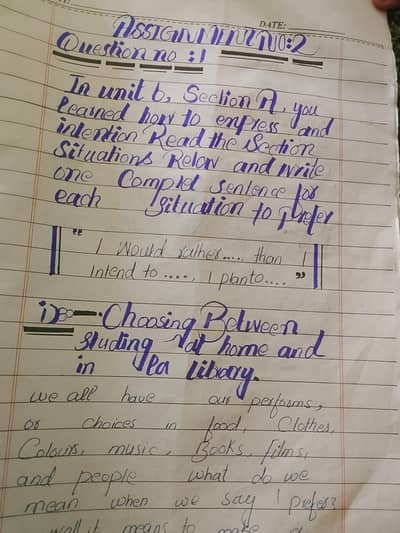 DATE:
ASSIGNMENT NO:2
Question no :1
In unit 6, Section A, you
learned how to express and
intention Read the Section
Situations Below and write
one Compled sentence for
each situation to prefer
" I Would rather.... than I
intend to ...., I planto.... "
i) Choosing Between
studing at home and
in a Library.
we all have our performs,
or choices in food, Clothes,
Colours, music, Books, films,
and people what do we
mean when we say I prefer?
well it means to make a